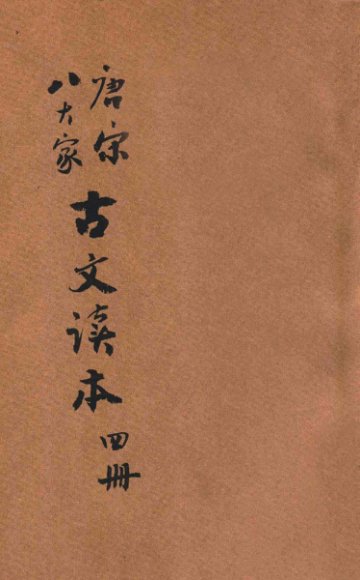 唐宋
八大家
古文读本
四册